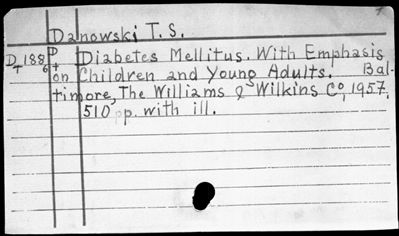 Danowski T. S.
D 188 D Diabetes Mellitus. With Emphasis
+ 6 + on Children and Young Adults. Bal-
timore, The Williams & Wilkins Co, 1957.
510 pp. with ill.